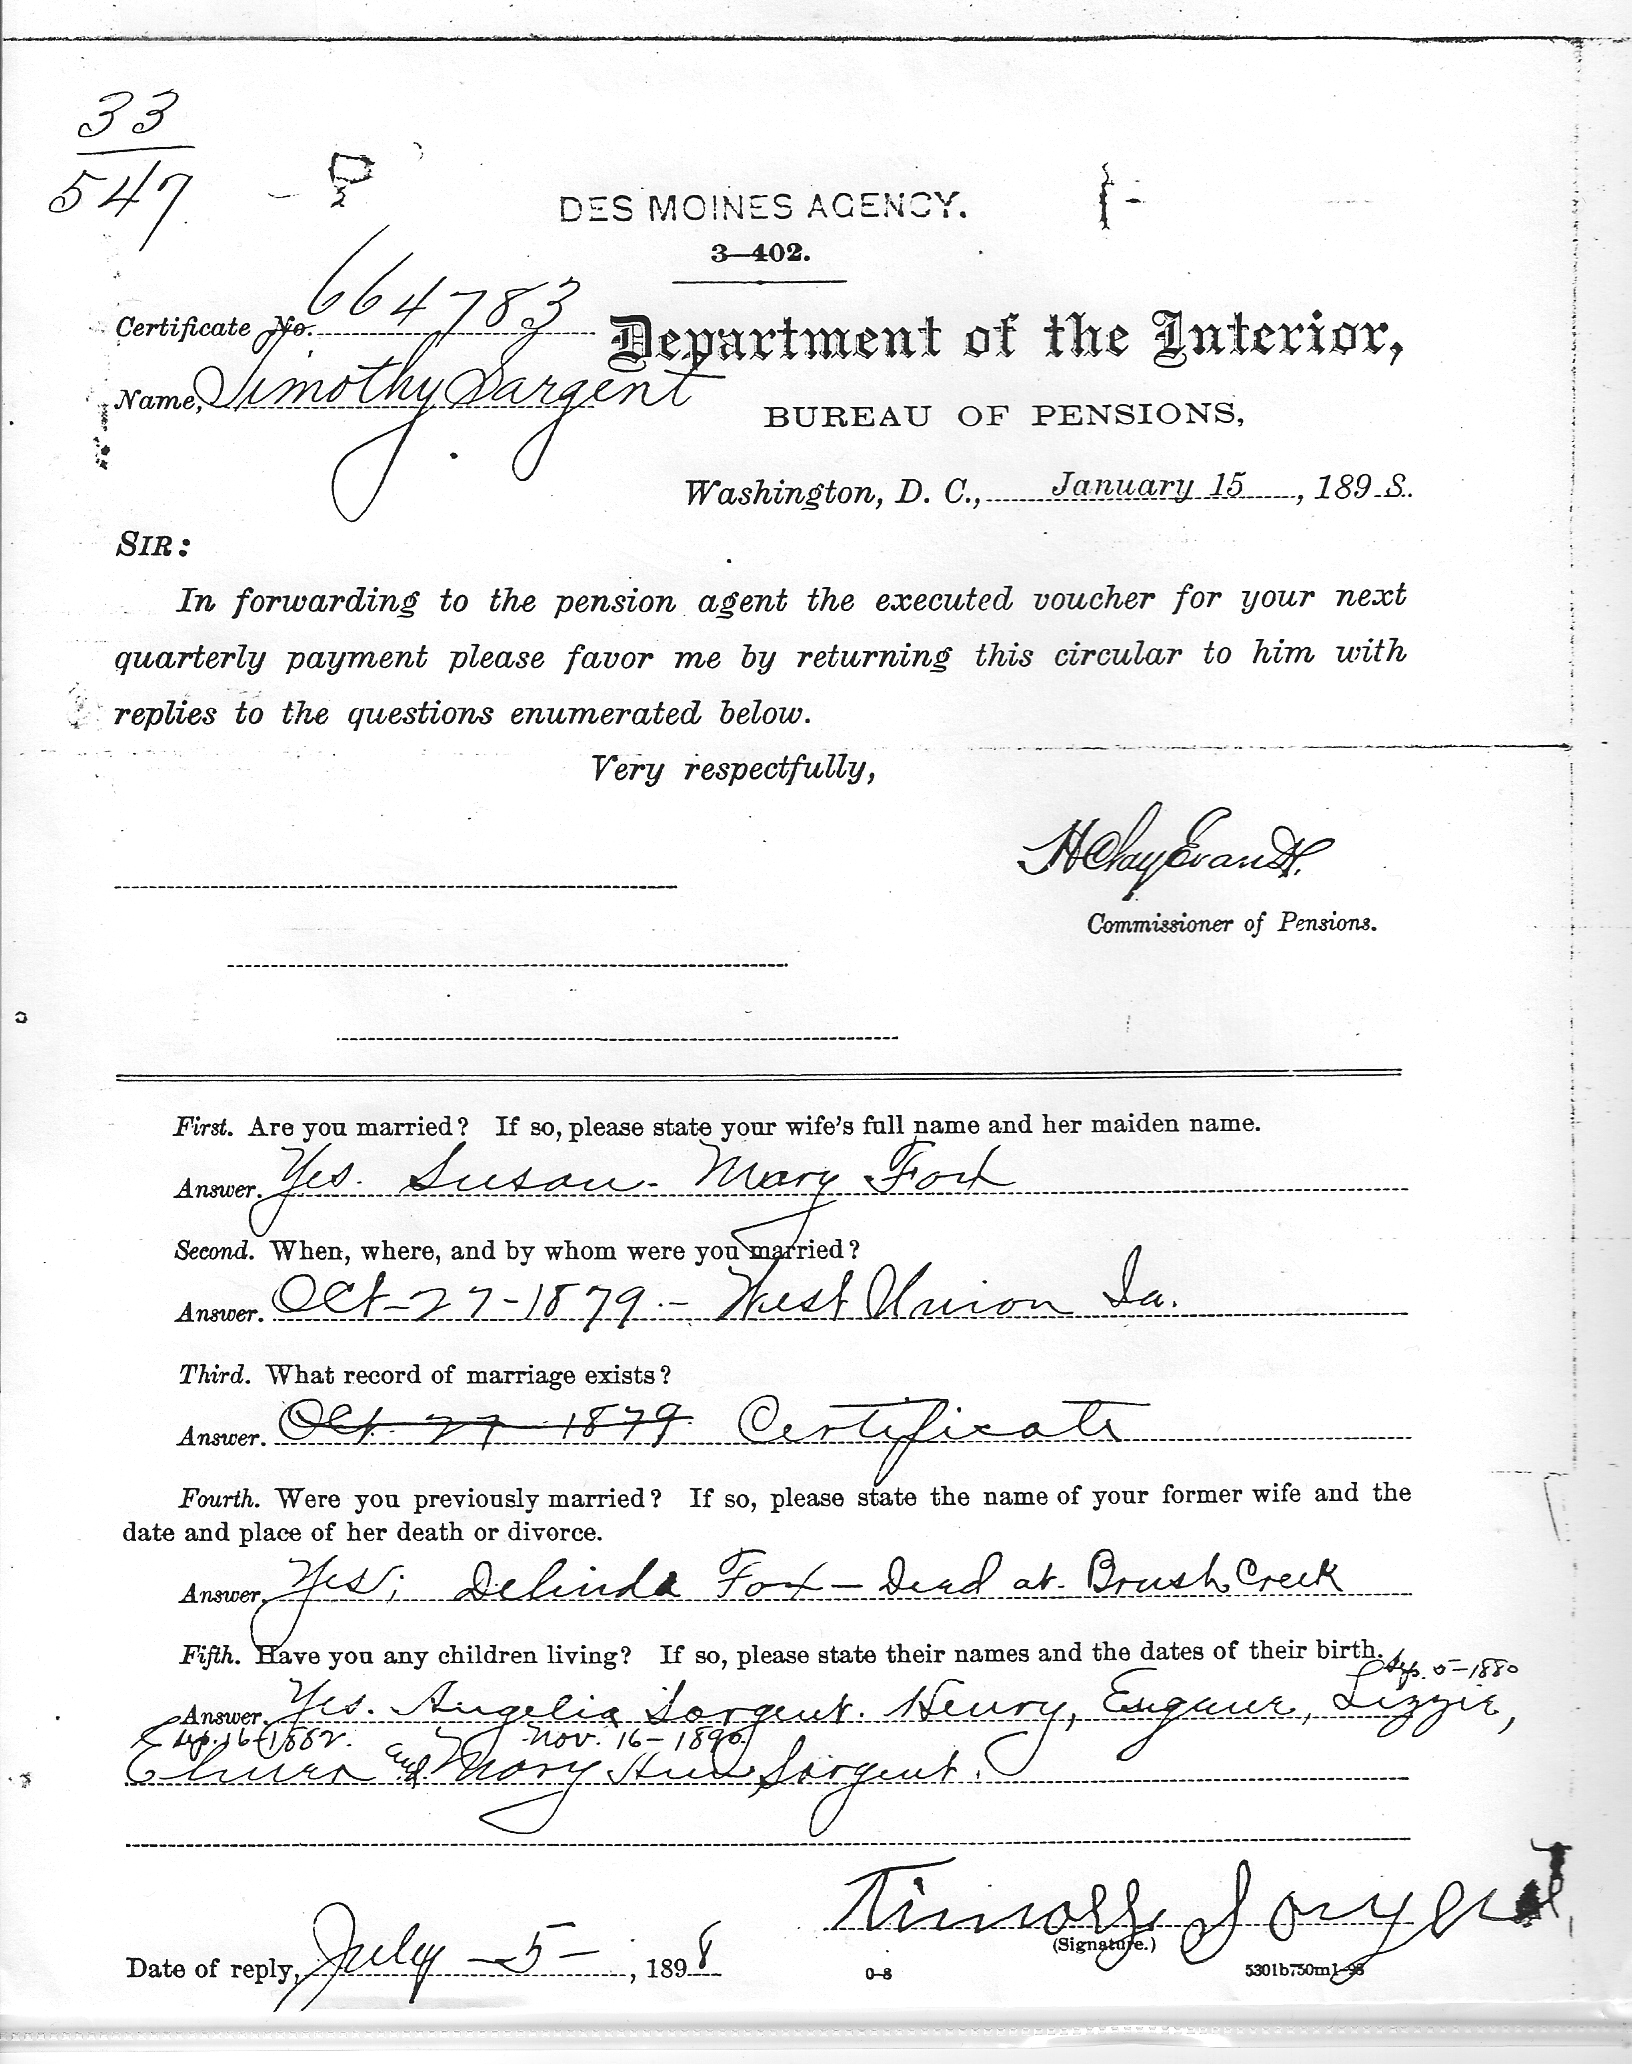 33
547
DES MOINES AGENCY.
3—402.
Certificate No. 664783
Department of the Interior,
Name, Timothy Sargent
BUREAU OF PENSIONS,
Washington, D. C., January 15, 1898.
SIR:
In forwarding to the pension agent the executed voucher for your next
quarterly payment please favor me by returning this circular to him with
replies to the questions enumerated below.
Very respectfully,
H Clay Evans
Commissioner of Pensions.
First. Are you married? If so, please state your wife's full name and her maiden name.
Answer. Yes. Susan - Mary Fox
Second. When, where, and by whom were you married?
Answer. Oct-27-1879.- West Union Ia.
Third. What record of marriage exists?
Answer. Oct. 27 1879. Certificate
Fourth. Were you previously married? If so, please state the name of your former wife and the
date and place of her death or divorce.
Answer. Yes; Delinda Fox - Dead at Brush Creek
Fifth. Have you any children living? If so, please state their names and the dates of their birth.
Sep. 5-1880
Answer. Yes. Angelia Sargent. Henry, Eugene, Lizzie,
Sep. 16-1882. Nov. 16-1890
Elmer and Mary Ann Sargent.
Timothy Sargent
(Signature.)
Date of reply, July -5-, 1898
0-8
5301b750m1-98